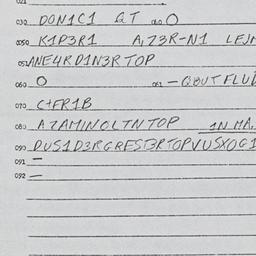 021
030 DON1C1 QT 060 O
050 K1P3R1 A,Z3R-N1 LEJM
051 ANE4RD1N3R TOP
060 O 061 -QBUT FLUD
070 C+FR1B
080 A7AMINOLTN TOP 1N MA.
090 DUS1D3RGRES3RTOPVUSXOG1
091 —
092 —